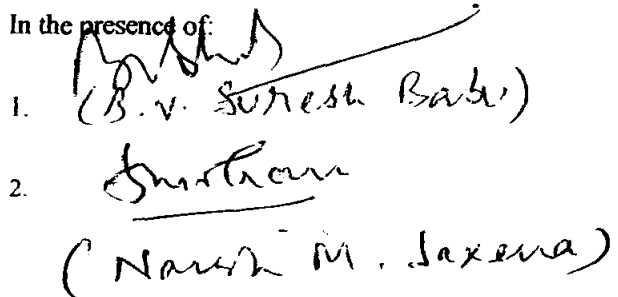 In the presence of:
1. (B.V. Suresh Babu)
2.
(Naresh M. Saxena)